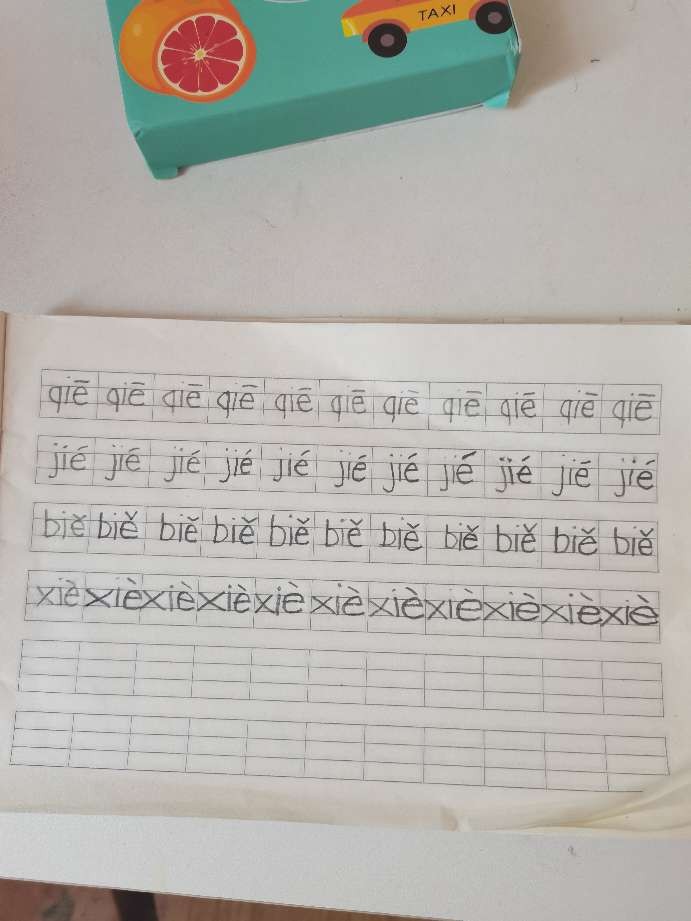 TAXI
qiē qiē qiē qiē qiē qiē qiē qiē qiē qiē qiē
jié jié jié jié jié jié jié jié jié jié jié
biě biě biě biě biě biě biě biě biě biě biě
xiè xiè xiè xiè xiè xiè xiè xiè xiè xiè xiè